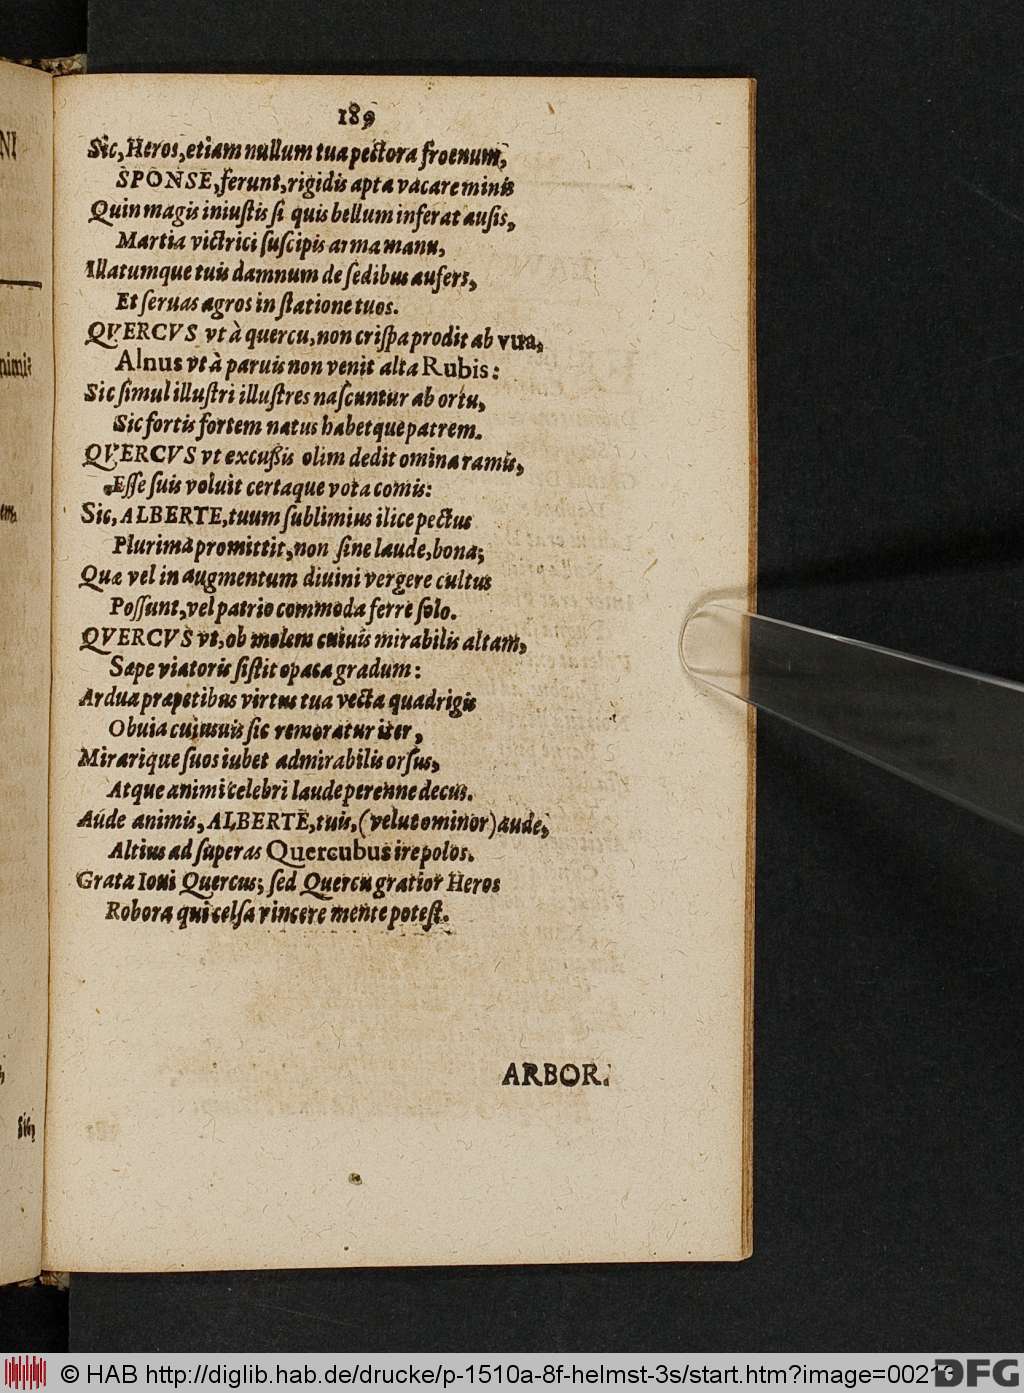 NI
189
Sic, Heros, etiam nullum tua pectora froenum,
SPONSE, ferunt, rigidis apta vacare minis
Quin magis iniustis si quis bellum inferat ausis,
Martia victrici suscipis arma manu,
Illatumque tuis damnum de sedibus aufers,
Et seruas agros in statione tuos.
QVERCVS vt à quercu, non crispa prodit ab vua,
Alnus vt à paruis non venit alta Rubis:
Sic simul illustri illustres nascuntur ab ortu,
Sic fortis fortem natus habetque patrem.
QVERCVS vt excußis olim dedit omina ramis,
Esse suis voluit certaque vota comis:
Sic, ALBERTE, tuum sublimius ilice pectus
Plurima promittit, non sine laude, bona;
Quæ vel in augmentum diuini vergere cultus
Possunt, vel patrio commoda ferre solo.
QVERCVS vt, ob molem cuiuis mirabilis altam,
Sæpe viatoris sistit opaca gradum:
Ardua præpetibus virtus tua vecta quadrigis
Obuia cuiusuis sic remoratur iter,
Mirarique suos iubet admirabilis orsus,
Atque animi celebri laude perenne decus.
Aude animis, ALBERTE, tuis, (velut ominor) aude,
Altius ad superas Quercubus ire polos.
Grata Ioui Quercus; sed Quercu gratior Heros
Robora qui celsa vincere mente potest.
ARBOR.
Sic,
© HAB http://diglib.hab.de/drucke/p-1510a-8f-helmst-3s/start.htm?image=00213
DFG